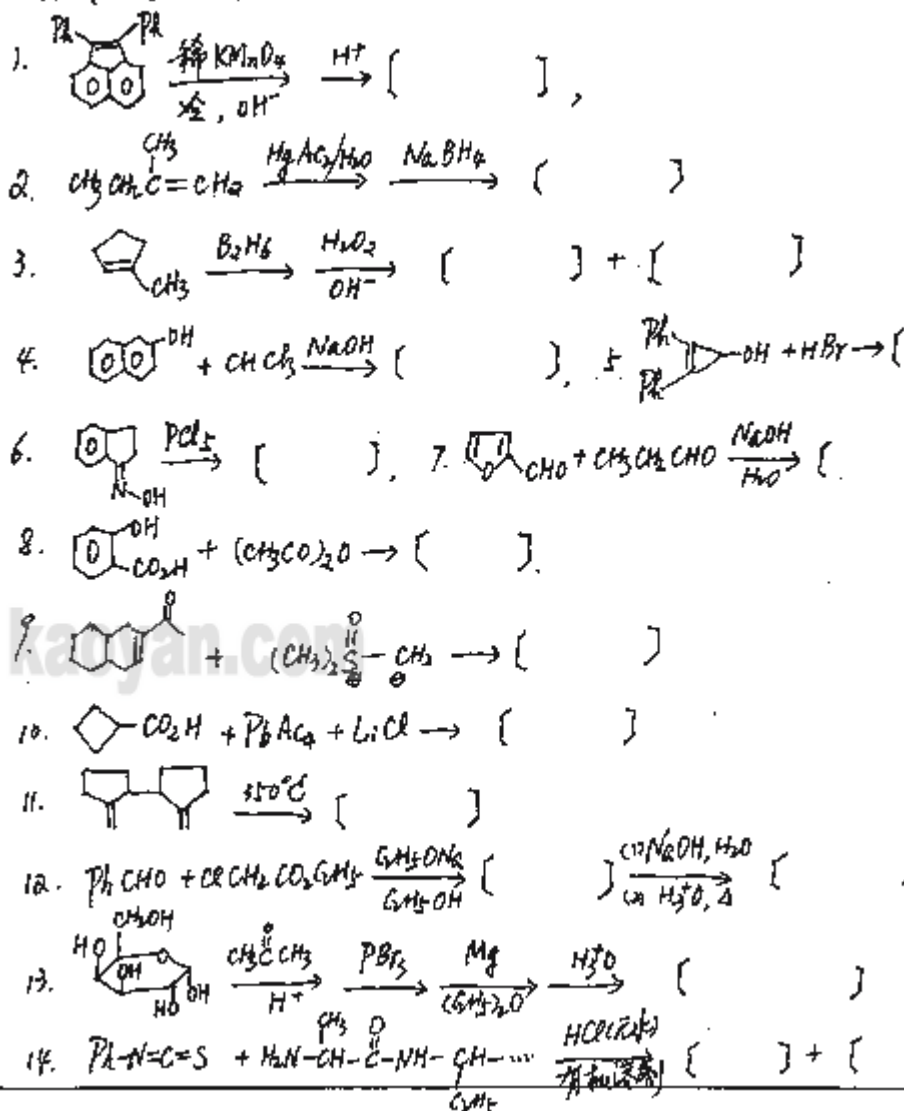 1. Ph Ph 稀KMnO4 / 冷, OH⁻ → H⁺ → [ ],
2. CH3CH2C(CH3)=CH2 HgAc2/H2O → NaBH4 → [ ]
3. CH3 B2H6 → H2O2 / OH⁻ → [ ] + [ ]
4. OH + CHCl3 NaOH → [ ], 5. Ph Ph -OH + HBr → [
6. N-OH PCl5 → [ ], 7. O CHO + CH3CH2CHO NaOH / H2O → [
8. OH CO2H + (CH3CO)2O → [ ].
9. O + (CH3)2S(=O)⊕-CH2⊖ → [ ]
kaoyan.com
10. -CO2H + PbAc4 + LiCl → [ ]
11. 350°C → [ ]
12. PhCHO + ClCH2CO2C2H5 C2H5ONa / C2H5OH → [ ] (1) NaOH, H2O / (2) H3⁺O, Δ → [
13. CH2OH HO O OH HO OH CH3CCH3 O / H⁺ → PBr3 → Mg / (C2H5)2O → H3⁺O → [ ]
14. Ph-N=C=S + H2N-CH(CH3)-C(=O)-NH-CH(C2H5)-··· HCl(无水) / 有机溶剂 → [ ] + [